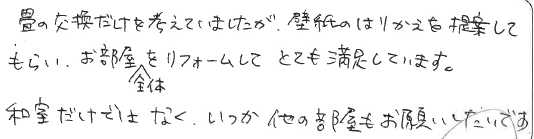 畳の交換だけを考えていましたが、壁紙のはりかえを提案して
もらい、お部屋全体をリフォームして とても満足しています。
和室だけではなく、いつか他の部屋もお願いしたいです